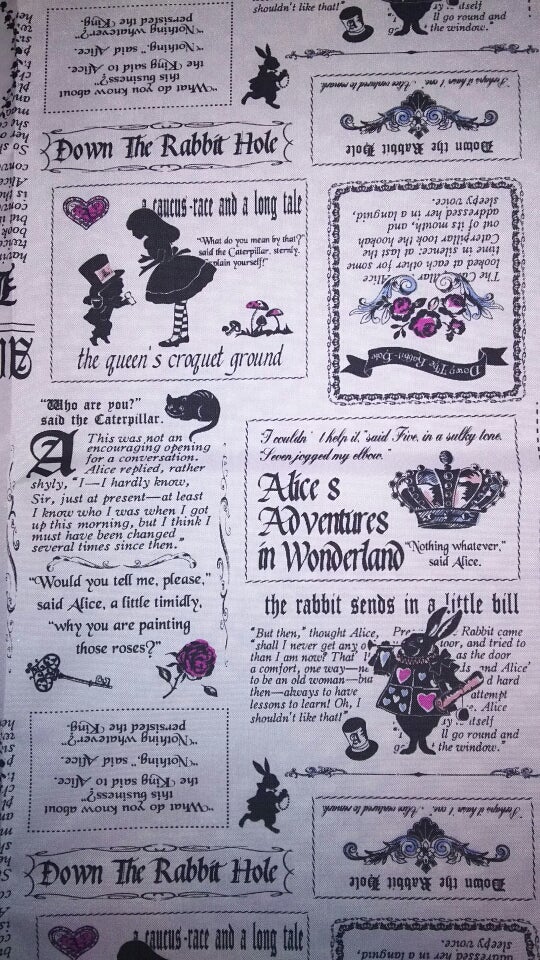 shouldn't like that!"
ll go round and
the window."
"What do you know about
this business?"
the King said to Alice.
"Nothing," said Alice.
"Nothing whatever?"
persisted the King.
Down The Rabbit Hole
Down the Rabbit Hole
Perhaps it hasn't one, Alice ventured to remark.
a caucus-race and a long tale
"What do you mean by that?"
said the Caterpillar, sternly.
plain yourself!"
the queen's croquet ground
Down The Rabbit-Hole
The Caterpillar Alice
looked at each other for some
time in silence: at last the
Caterpillar took the hookah
out of its mouth, and
addressed her in a languid,
sleepy voice.
"Who are you?"
said the Caterpillar.
A This was not an
encouraging opening
for a conversation.
Alice replied, rather
shyly, "I—I hardly know,
Sir, just at present—at least
I know who I was when I got
up this morning, but I think I
must have been changed
several times since then."
"Would you tell me, please,"
said Alice, a little timidly,
"why you are painting
those roses?"
I couldn' t help it, "said Five, in a sulky tone.
"Seven jogged my elbow."
Alice s
Adventures
in Wonderland
"Nothing whatever,"
said Alice.
the rabbit sends in a little bill
"But then," thought Alice,
"shall I never get any o
than I am now? That' l
a comfort, one way—n
to be an old woman—but
then—always to have
lessons to learn! Oh, I
shouldn't like that!"
Rabbit came
oor, and tried to
as the door
ds and Alice'
d hard
attempt
e. Alice
y itself
ll go round and
the window."
"What do you know about
this business?"
the King said to Alice.
"Nothing," said Alice.
"Nothing whatever?"
persisted the King.
Down The Rabbit Hole
Down the Rabbit Hole
Perhaps it hasn't one, Alice ventured to remark.
a caucus-race and a long tale
addressed her in a languid,
sleepy voice.